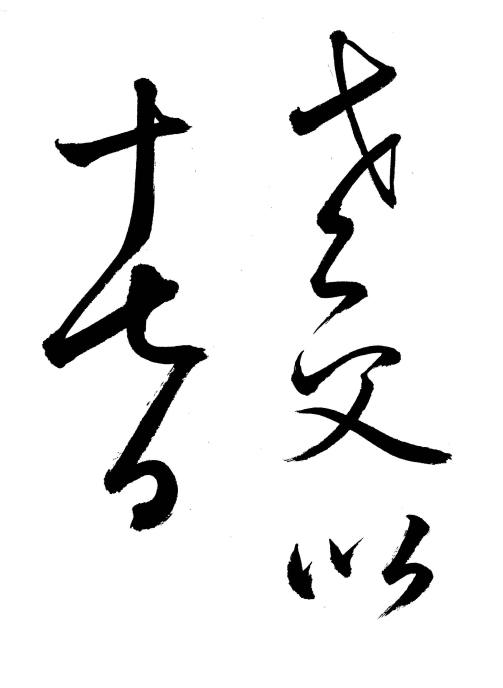 老父以
十七日